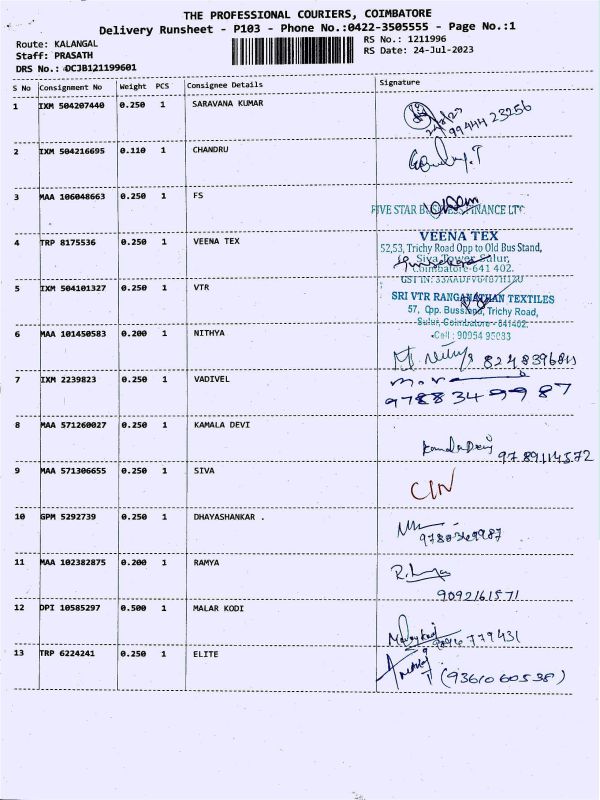 THE PROFESSIONAL COURIERS, COIMBATORE
Delivery Runsheet - P103 - Phone No.:0422-3505555 - Page No.:1
Route: KALANGAL
RS No.: 1211996
Staff: PRASATH
RS Date: 24-Jul-2023
DRS No.: DCJB121199601
S No Consignment No Weight PCS Consignee Details Signature
1 IXM 504207440 0.250 1 SARAVANA KUMAR
99444 23256
2 IXM 504216695 0.110 1 CHANDRU
3 MAA 106048663 0.250 1 FS
FIVE STAR BUSINESS FINANCE LTD
4 TRP 8175536 0.250 1 VEENA TEX
VEENA TEX
52,53, Trichy Road Opp to Old Bus Stand,
Siva Tower, Sulur,
Coimbatore-641 402.
5 IXM 504101327 0.250 1 VTR
SRI VTR RANGANATHAN TEXTILES
57, Opp. Busstand, Trichy Road,
Sulur, Coimbatore - 641402.
6 MAA 101450583 0.200 1 NITHYA
Cell : 90954 95033
7 IXM 2239823 0.250 1 VADIVEL
97883 49987
8 MAA 571260027 0.250 1 KAMALA DEVI
Kamala Devi
9789114572
9 MAA 571306655 0.250 1 SIVA
C/N
10 GPM 5292739 0.250 1 DHAYASHANKAR .
9788349987
11 MAA 102382875 0.200 1 RAMYA
9092161571
12 DPI 10585297 0.500 1 MALAR KODI
13 TRP 6224241 0.250 1 ELITE
(9361060538)